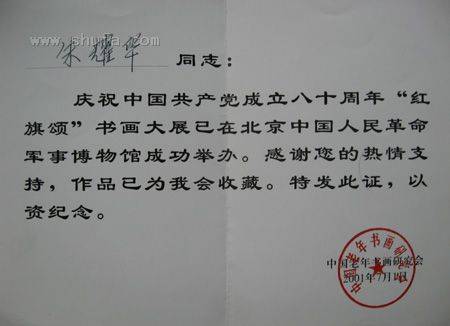 www.shuhua.com
朱耀华 同志：
庆祝中国共产党成立八十周年“红
旗颂”书画大展已在北京中国人民革命
军事博物馆成功举办。感谢您的热情支
持，作品已为我会收藏。特发此证，以
资纪念。
中国老年书画研究会
2001年7月1日
中国老年书画研究会